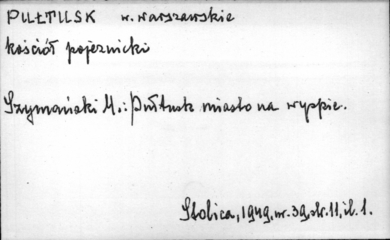 PUŁTUSK w. warszawskie
kościół pojezuicki
Szymański M.: Pułtusk miasto na wyspie.
Stolica, 1949, nr. 39, str. 11, il. 1.